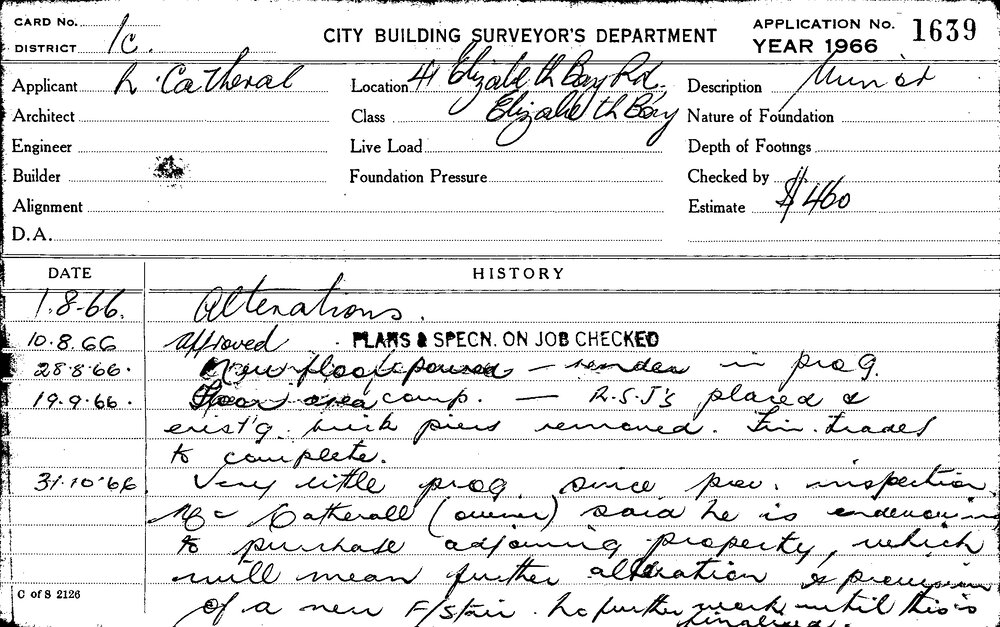 CARD No.
DISTRICT 1C.
CITY BUILDING SURVEYOR'S DEPARTMENT
APPLICATION No. 1639
YEAR 1966
Applicant L. Catheral
Location 41 Elizabeth Bay Rd.
Elizabeth Bay
Description Minor
Architect
Class
Nature of Foundation
Engineer
Live Load
Depth of Footings
Builder
Foundation Pressure
Checked by
Alignment
Estimate $460
D.A.
DATE HISTORY
1.8.66. Alterations.
10.8.66 Approved . PLANS & SPECN. ON JOB CHECKED
28.8.66. New floor poured — render in prog.
19.9.66. Floor area comp. — R.S.J's placed &
exist'g. brick piers removed. Fin. trades
to complete.
31.10.66. Very little prog. since prev. inspection
Mr Catherall (owner) said he is endeavouring
to purchase adjoining property, which
will mean further alteration & provision
of a new F/Stair. No further work until this is
finalised.
C of S 2126